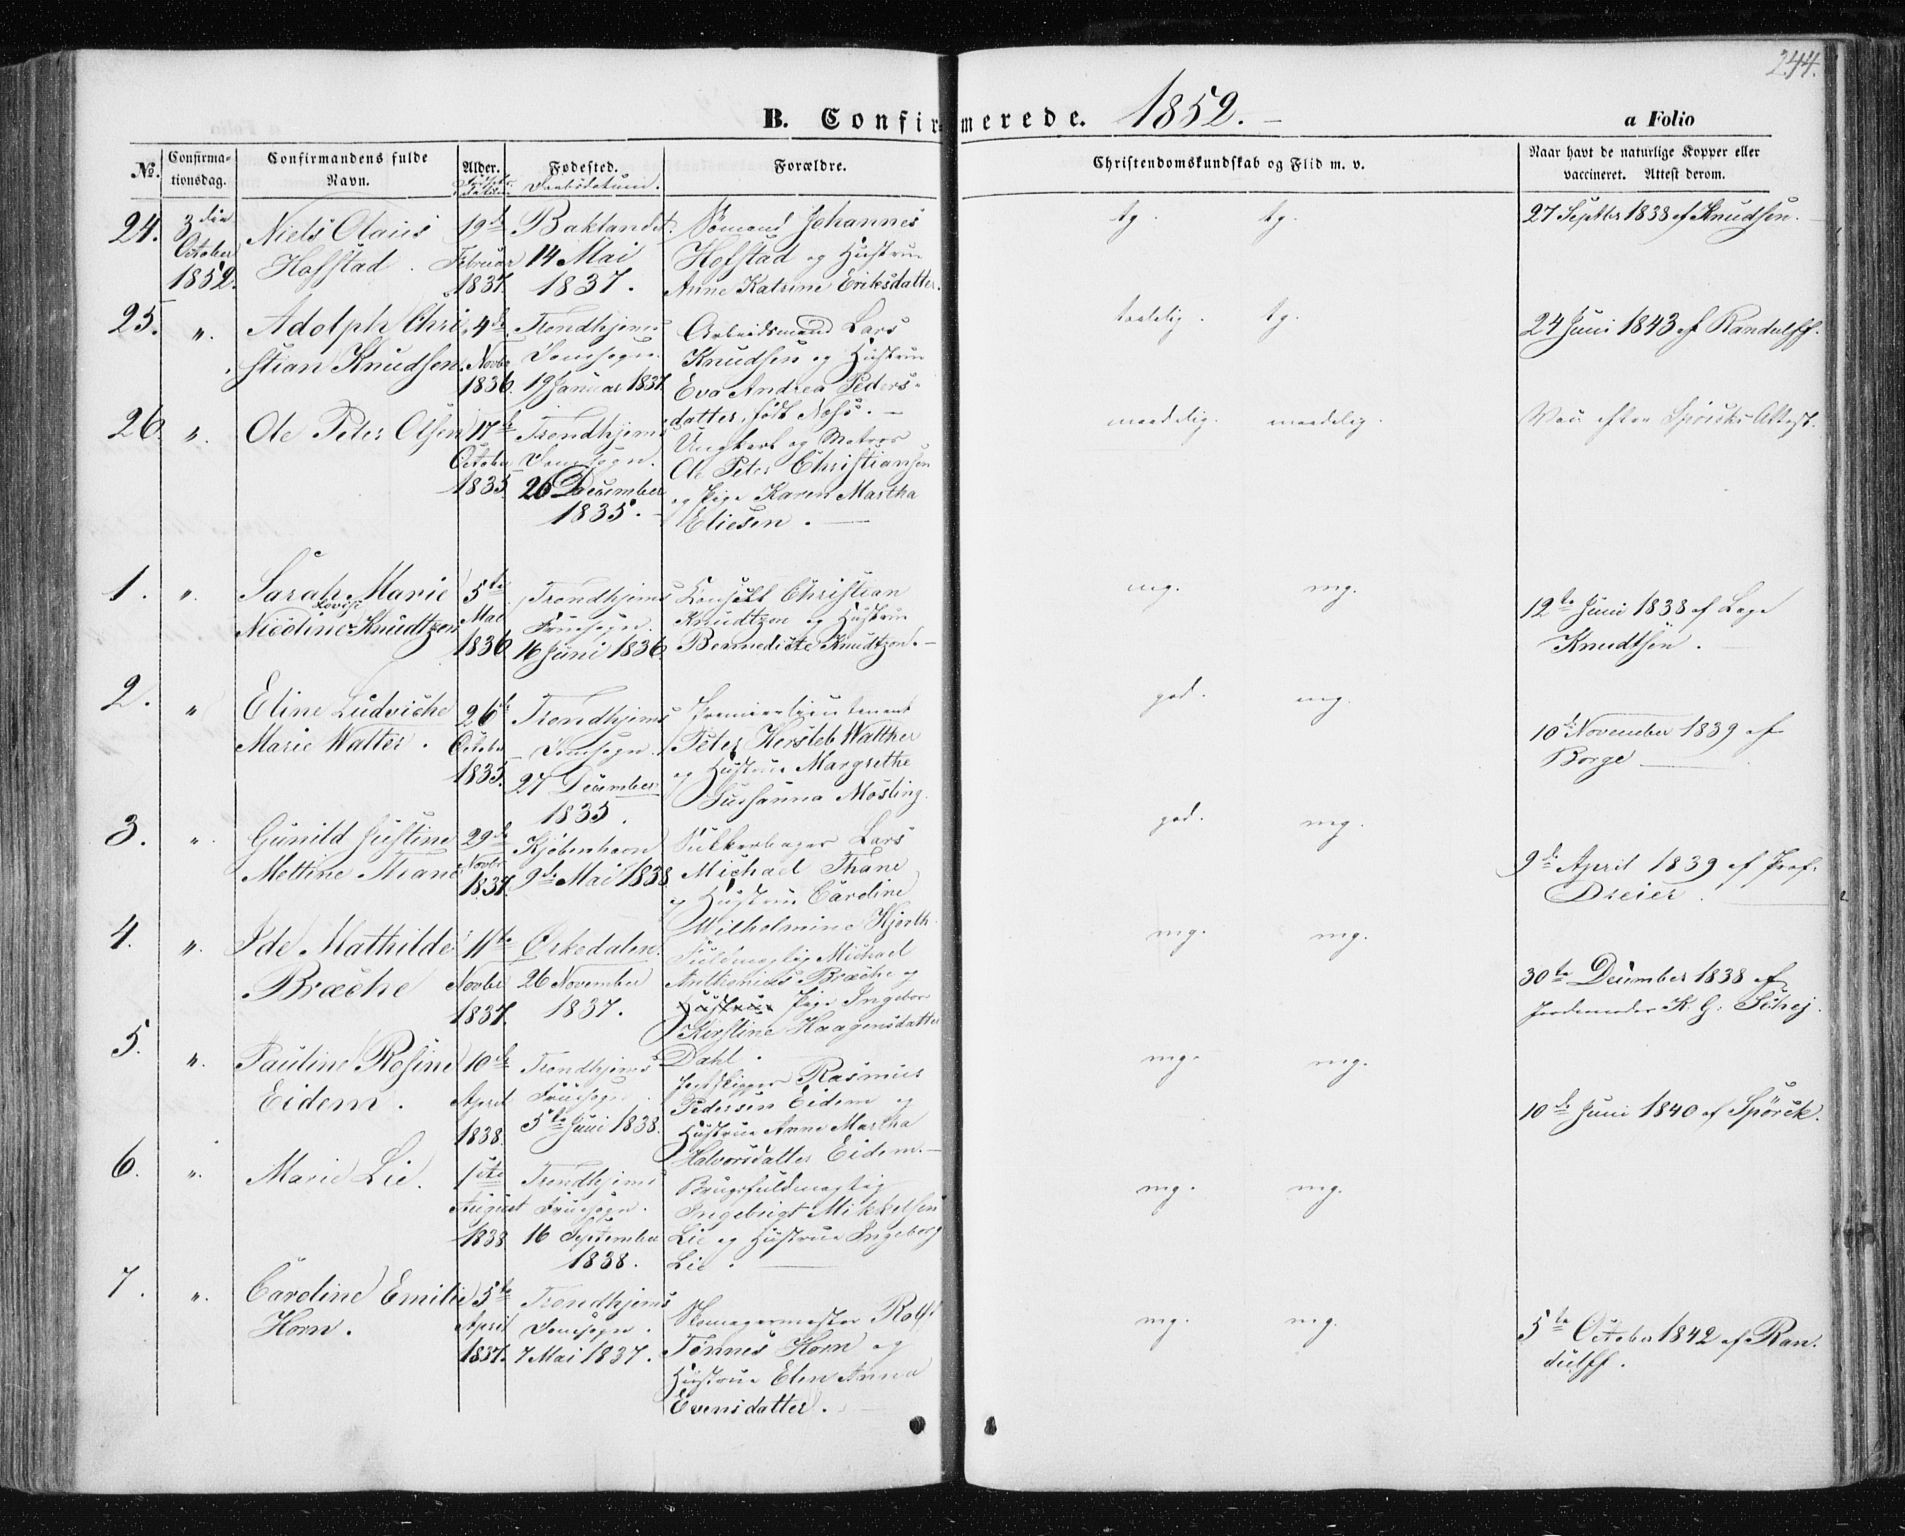 244.
B. Confirmerede. 1852.
a Folio
No. Confirma-tionsdag. Confirmandens fulde Navn. Alder. Fødselsdatum Fødested. Daabsdatum. Forældre. Christendomskundskab og Flid m. v. Naar havt de naturlige Kopper eller vaccineret. Attest derom.
24. 3die Niels Olaus 19de Baklandet. Sømand Johannes tg. tg. 27 Septbr 1838 af Knudsen.
October Hofstad. Februar 14 Mai Hofstad og Hustrue
1852. 1837. 1837. Anne Katrine Eriksdatter.
25. ". Adolph Chri- 4de Trondhjems Arbeidsmand Lars taalelig. tg. 24 Juni 1843 af Randulff.
stian Knudsen. Novbr Domsogn. Knudsen og Hustrue
1836. 19 Januar 1837. Eva Andrea Peders-
datter, født Næss.
26. ". Ole Peter Olsen 17de Trondhjems Ungkarl og Matros maadelig. maadelig. Vac. efter Spörcks Attest.
October Domsogn. Ole Peter Christiansen
1835. 26 December og Pige Karen Martha
1835. Eliesen.
1. ". Sarah Marie 5te Trondhjems Consul Christian mg. mg. 12te Juni 1838 af Læge
Lovise
Nicoline Knudtzon Mai Fruesogn. Knudtzon og Hustrue Knudtsøn.
1836. 16 Juni 1836. Bennedicte Knudtzon.
2. " Eline Ludviche 26de Trondhjems Premierlieutenant god. mg. 10de November 1839 af
Marie Walter. October Domsogn. Peter Kersteb Walther Borge
1835. 27 December og Hustrue Margrethe
1835. Susanna Mösling.
3. ". Gunild Justine 29de Kjøbenhavn Sukkerbager Lars god. mg. 9de April 1839 af Prof.
Mettine Thane Novbr 9de Mai 1838. Michael Thane Dreier.
1837. og Hustrue Caroline
Wilhelmine Hjorth.
4. ". Ide Mathilde 11te Ørkedalen. Fuldmægtig Michael mg. mg. 30te December 1838 af
Bræche Novbr 26 November Anthonius Bræche og Jordemoder K. G. Schej.
1837. 1837. Hustrue Pige Ingebor
Kirstine Haagensdatter
Dahl.
5. ". Pauline Rosine 10de Trondhjems Rasmus mg. mg. 10de Juni 1840 af Spörck.
Eidem. April Fruesogn. Pedersen Eidem og
1838. 5te Juni 1838. Hustrue Anne Martha
Halvorsdatter Eidem.
6. ". Marie Lie. 1ste Trondhjems Brugsfuldmægtig mg. mg.
August Fruesogn. Ingebrigt Mikkelsen
1838 16 September Lie og Hustrue Ingeborg
1838. Lie.
7. ". Caroline Emilie 5te Trondhjems Skomagermester Rolf mg. mg. 5te October 1842 af Ran-
Horn. April Domsogn. Tønnes Horn og dulff.
1837. 7 Mai 1837. Hustrue Elen Anna
Evensdatter.